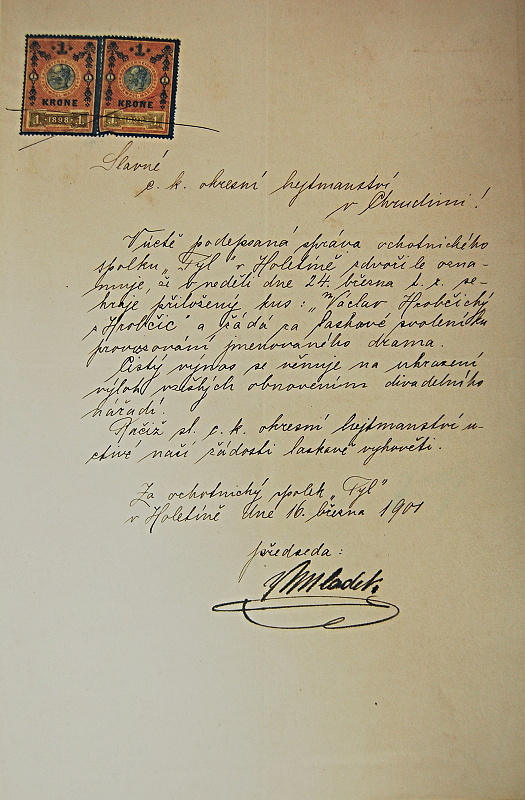 1 1
KRONE KRONE
1 1898 1 1 1898 1
Slavné
c. k. okresní hejtmanství
v Chrudimi!
V úctě podepsaná správa ochotnického
spolku „Tyl" v Holetíně zdvořile ozna-
muje, že v neděli dne 24. března t. r. se-
hraje přiložený kus: „Václav Hrobčický
z Hrobčic" a žádá za laskavé svolení ku
provozování jmenovaného drama.
Čistý výnos se věnuje na uhrazení
výloh vzešlých obnovením divadelního
nářadí.
Račiž sl. c. k. okresní hejtmanství u-
ctivé naší žádosti laskavě vyhověti.
Za ochotnický spolek „Tyl"
v Holetíně dne 16. března 1901
předseda:
Mladek.